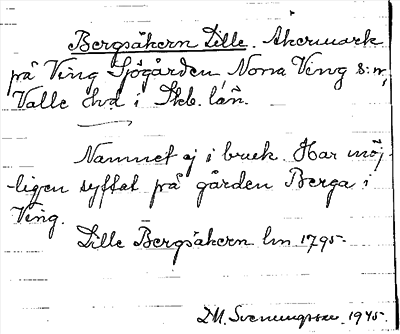 Bergsåkern Lille. Åkermark
på Ving Sjögården Norra Ving s:n,
Valle hd i Skb. län.
Namnet ej i bruk. Har möj-
ligen syftat på gården Berga i
Ving.
Lille Bergsåkern lm 1795.
D.M. Svenungsson 1945.